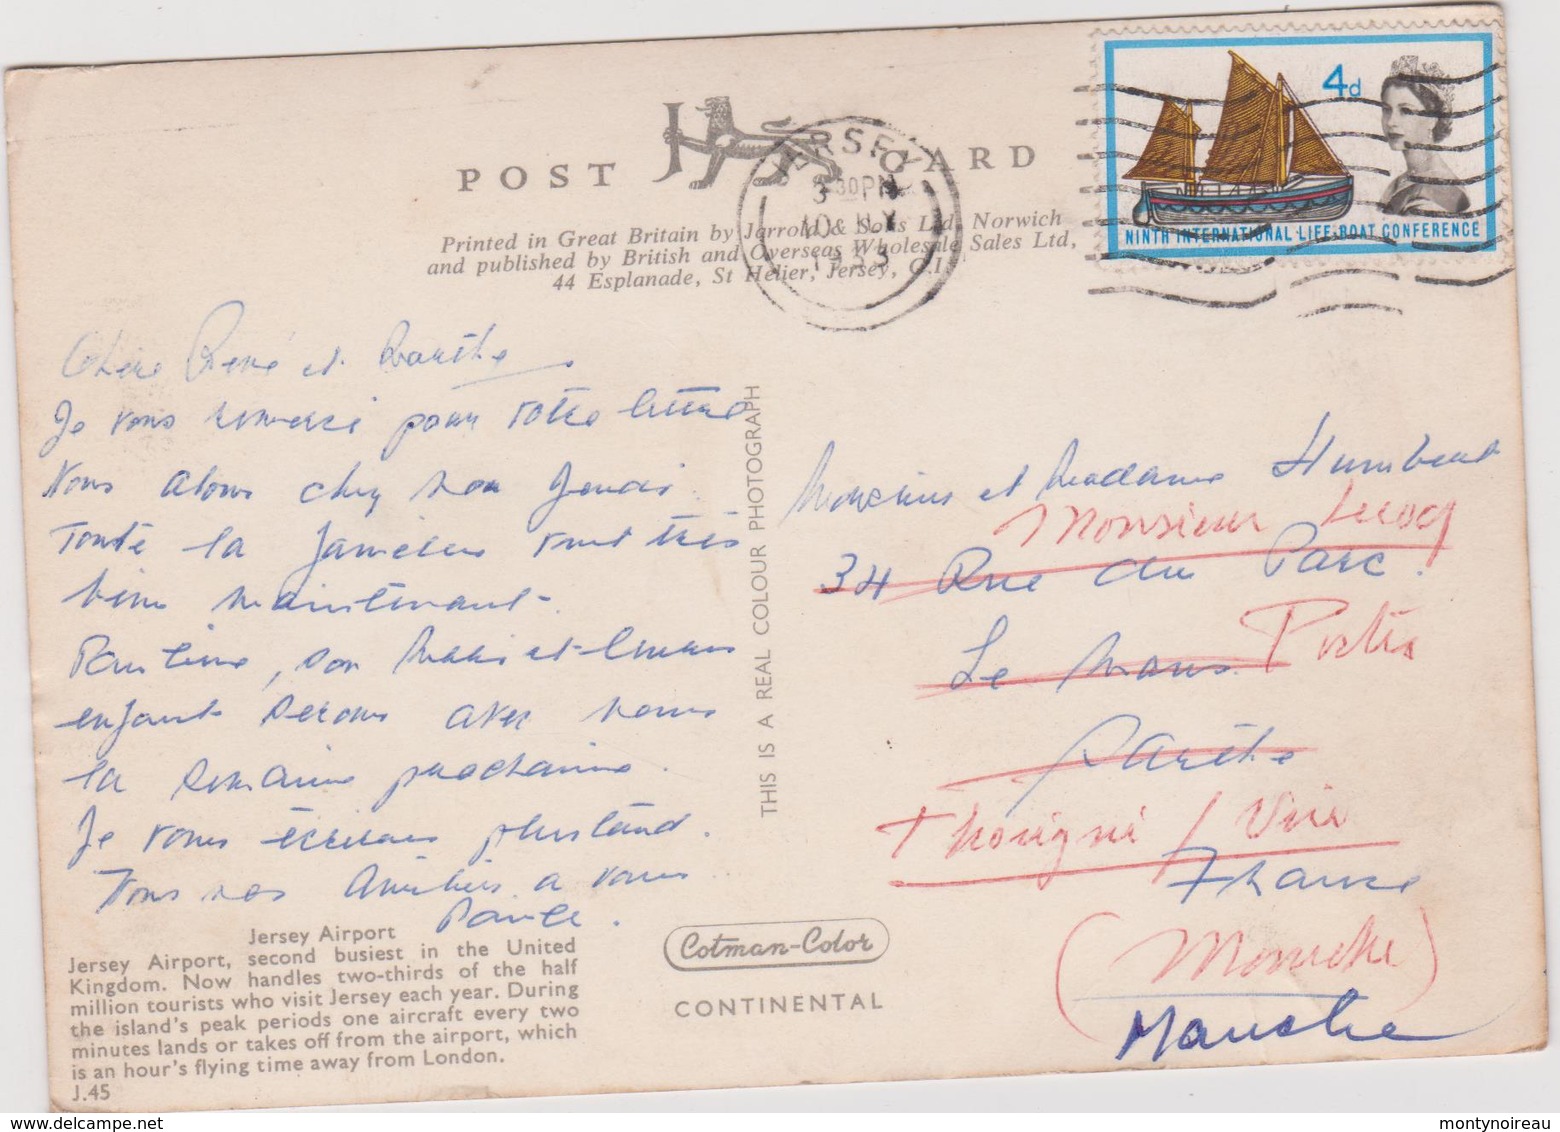 POST CARD
Printed in Great Britain by Jarrold & Sons Ltd, Norwich
and published by British and Overseas Wholesale Sales Ltd,
44 Esplanade, St Helier, Jersey, C.I.
JERSEY
3 30PM
10 JLY
1963
4d
NINTH INTERNATIONAL LIFE-BOAT CONFERENCE
Chère René et Marthe
Je vous remerci pour votre lettre
Nous alons chez Jeudi.
Toute la famielle vont très
bien maintenant.
Pauline, son mari et
enfant serons avec nous
la semaine prochaine.
Je vous écrirais plustard.
Tous nos Amitiés a vous
THIS IS A REAL COLOUR PHOTOGRAPH
et Madame Humbert
Monsieur Lecoq
34 Rue du Parc.
Le Mans.
Sarthe
Thorigni / Vire
France
(Manche)
Manche
Jersey Airport
Jersey Airport, second busiest in the United
Kingdom. Now handles two-thirds of the half
million tourists who visit Jersey each year. During
the island's peak periods one aircraft every two
minutes lands or takes off from the airport, which
is an hour's flying time away from London.
J.45
Cotman-Color
CONTINENTAL
montynoireau